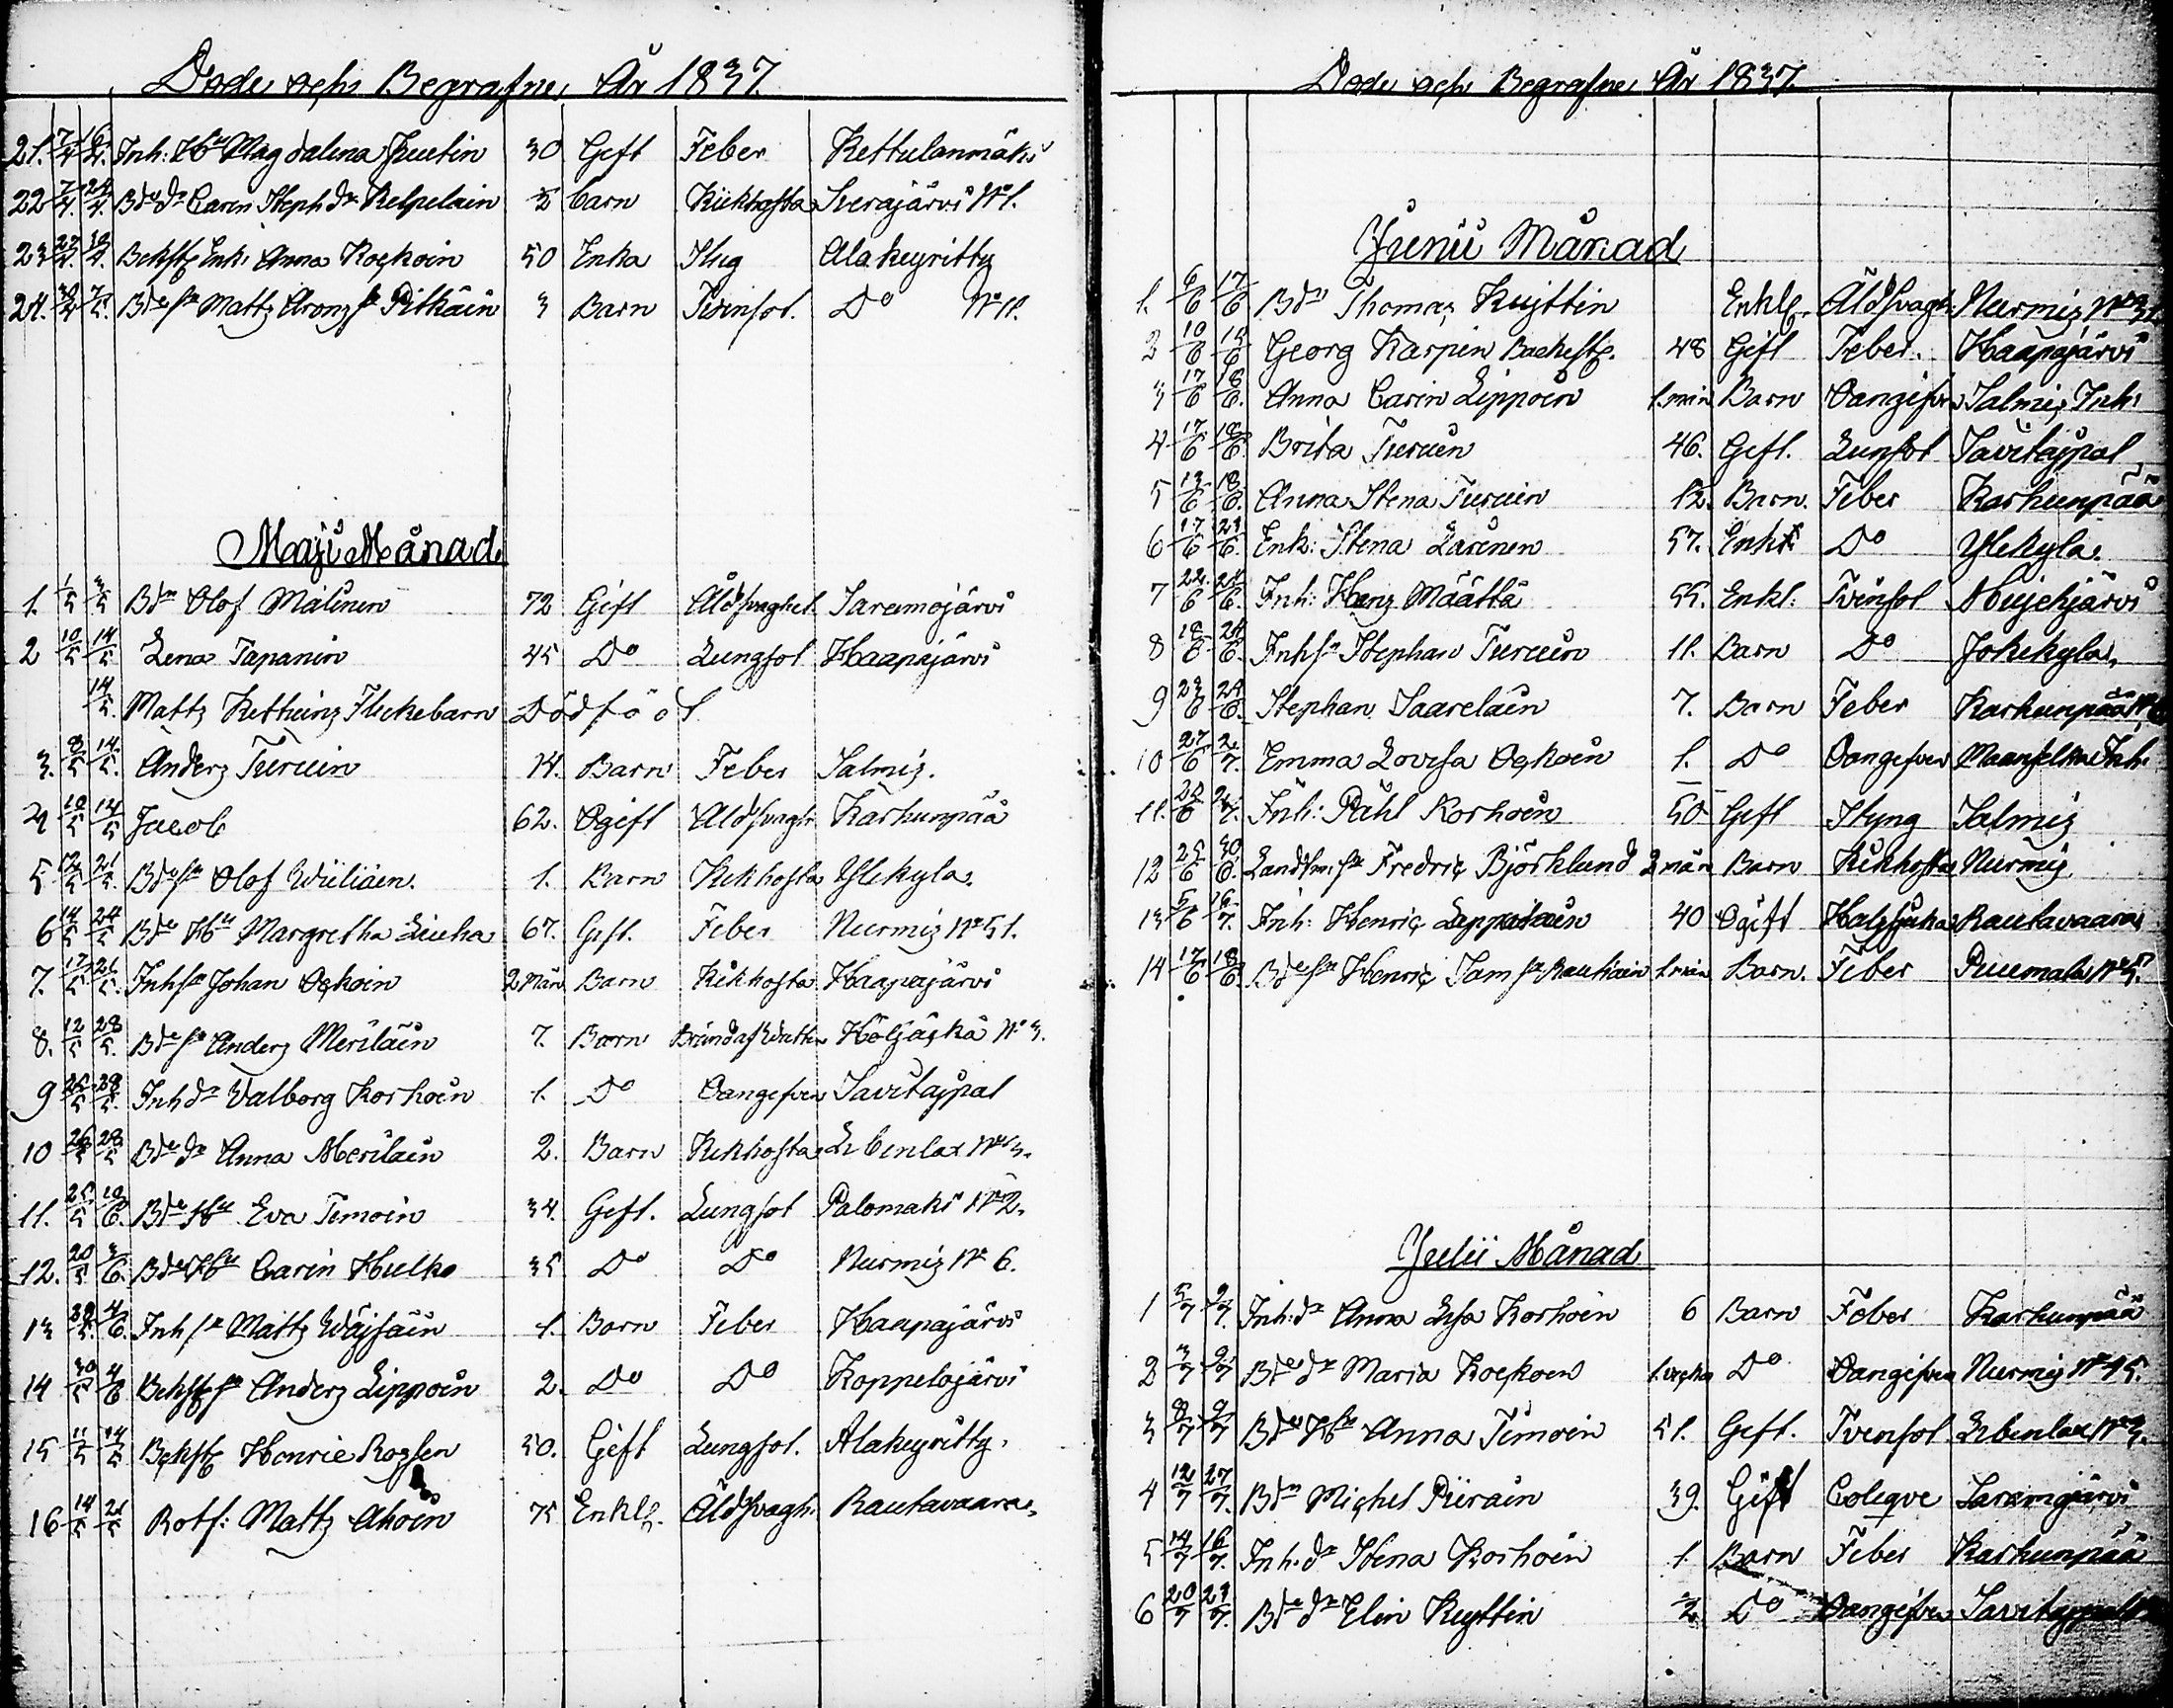 Döde och Begrafne År 1837.
21. 7/4 16/4. Inh: Hu Magdalena Juutin 30 Gift Feber Kettulanmäki
22 7/4. 24/4. Bde dr Carin Steph dr Kelpelain 1/2 barn Kikhosta Sverajärvi No 1.
23 22/4. 30/4. Bckstf Enk: Anna Kockoin 50 Enka Slug Alakeyritty
24. 30/4 7/5. Bde sn Mattz Aronz sn Pitkäin 3 Barn Tvinsot. Do No 11.
Maji Månad
1. 1/5 3/5 Bdn Olof Mälinen 72 Gift Åldsvaghet. Saramojärvi
2 10/5 14/5. Lena Tapanin 45 Do Lungsot Haapajärvi
14/5. Mattz Kettuinz Flickebarn Dödfödt
3. 8/5 14/5. Anderz Turuin 14. Barn Feber Salmiz.
4 10/5 14/5 Jacob 62. Ogift Åldsvagh: Karhunpää
5 12/5 21/5. Bde sn Olof Wiiliäin. 1. Barn Kikhosta Ylekyla.
6 14/5 24/5 Bde Hu Margretha Liuha 67. Gift. Feber Nurmiz No 51.
7. 17/5 21/5. Inh sn Johan Ockoin 2 Mån Barn Kikhosta Haapajärvi
8. 12/5 28/5. Bde sn Anderz Meriläin 7. Barn Bränd af Watten Höljäckä No 3.
9 25/5 28/5. Inh dr Valborg Korhoin 1. Do Oangifven Savitajpal
10 26/5 28/5 Bde dr Anna Meriläin 2. Barn Kikhosta Libenlax No 3.
11. 25/5 10/6. Bde Hu Eva Timoin 34. Gift. Lungsot Palomaki No 2.
12. 20/5. 3/6. Bde Hu Carin Hulko 35 Do Do Nurmiz No 6.
13 28/5. 4/6. Inh sn Mattz Wäjsäin 1. Barn Feber Haapajärvi
14 30/5 4/6 Bckstf sn Anderz Lippoin 2. Do Do Koppelojärvi
15 11/5 14/5 Bckstf Henric Rozsen 50. Gift Lungsot. Alakeyritty.
16 14/5 21/5 Rotf: Mattz Ahoin 75 Enklg. Åldsvagh. Rautavaara.
Döde och Begrafne År 1837.
Junii Månad
1. 6/6 17/6 Bdn Thomaz Kujttin Enklg. Åldsvagh. Nurmiz No 31.
2 10/6 15/6 Georg Karpin Backestf. 48 Gift Feber. Haapajärvi
3 17/6 18/6. Anna Carin Lippoin 1. min Barn Oangifvn Salmiz Inh:
4 17/6 18/6. Brita Turuin 46. Gift. Lunsot Savitajpal
5 13/6 18/6. Anna Stena Turuin 12. Barn. Feber Karhunpää
6 17/6 21/6. Enk: Stena Laeinen 57. Enka Do Ylekyla.
7 22/6 24/6. Inh: Hanz Määttä 55. Enkl: Tvinsot Mujejärvi
8 18/6 24/6. Inh sn Stephan Turuin 11. Barn Do Jokikyla.
9 23/6 24/6. Stephan Saareläin 7. Barn Feber Karhunpää No 6
10 27/6 2/7. Emma Lovisa Ockoin 1. Do Oangifven Maanselka Inh:
11. 28/6 2/7. Inh: Påhl Korhoin 50 Gift Styng Salmiz
12 25/6 30/6. Landsm: sn Fredric Björklund 2 mån Barn Kikhosta Nurmiz
13 5/6 16/7. Inh: Henric Leppalain 40 Ogift Halssjuka Rautavaara
14 17/6 18/6. Bde sn Henric Sam sn Rauhiain 1 min Barn. Feber Puumala No 5.
Julii Månad
1 5/7 9/7. Inh: dr Anna Lisa Korhoin 6 Barn Feber Karhunpää
2 3/7 9/7 Bde dr Maria Kockoen 1. vecka Do Oangifven Nurmiz No 45.
3 8/7 9/7 Bde Hu Anna Timoin 51. Gift. Tvinsot Libenlax No 3.
4 12/7 27/7. Bdn Michel Piirain 39. Gift Coleqve Saramojärvi
5 14/7 16/7. Inh. dr Stena Korhoin 1. Barn Feber Karhunpää
6 20/7 23/7. Bde dr Elin Kuyttin 1/2 Do Oangifven Savitajpal